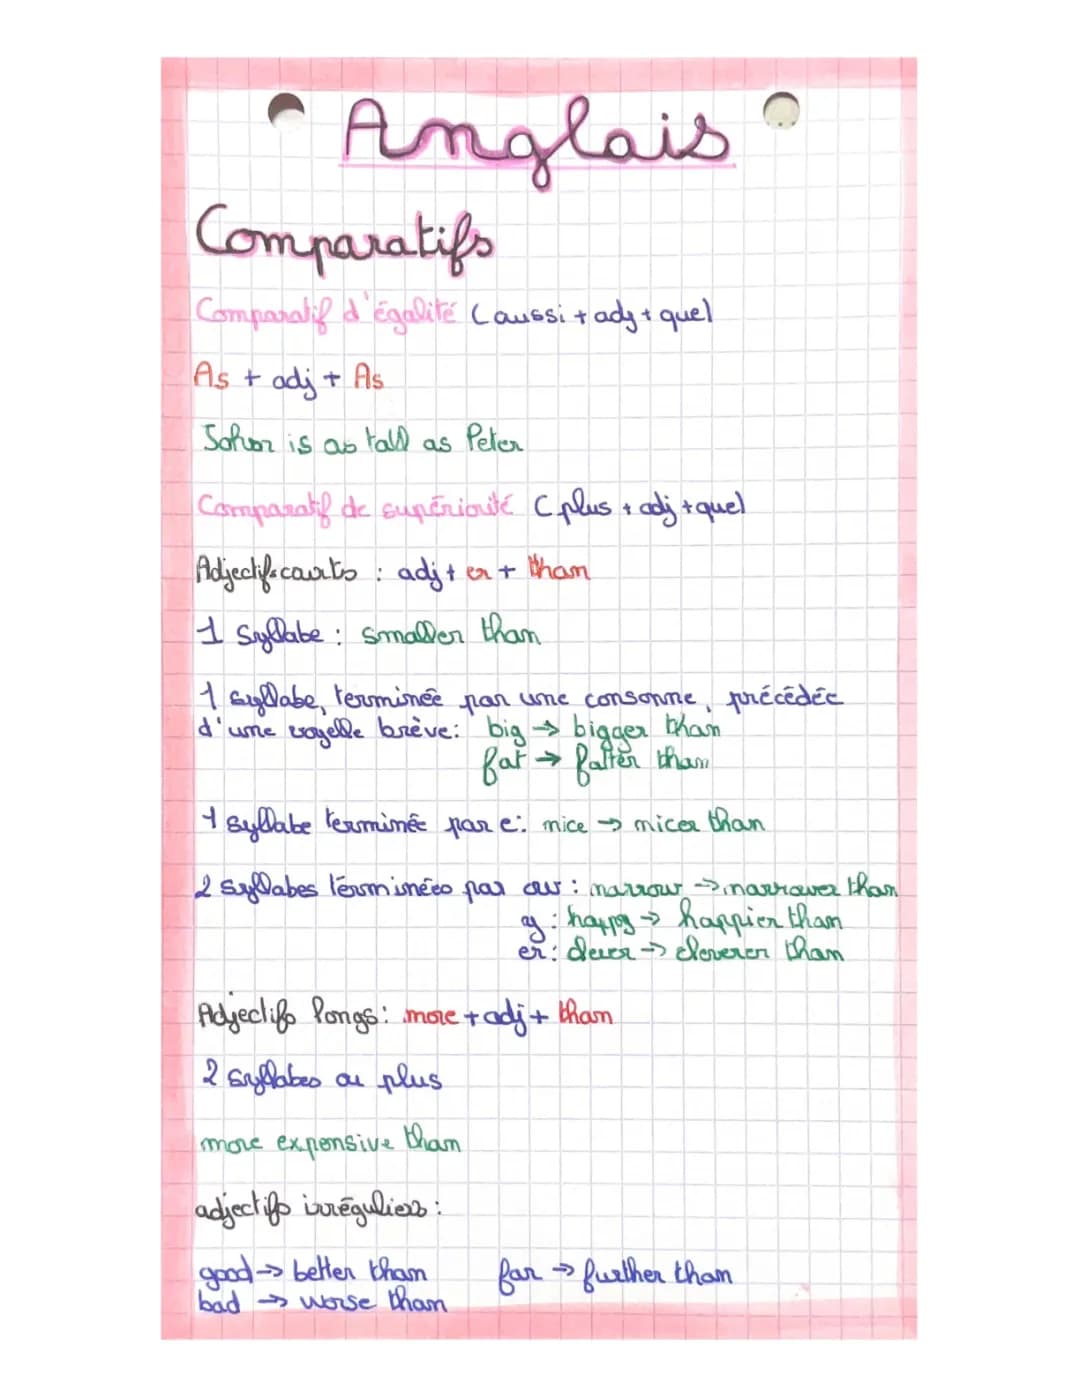 Anglais
Comparatifs
Comparatif d'égalité (aussi + adj + que)
As + adj + As
is as tall as Peter
Comparatif de supériorité (plus + adj + que)
Adjectifs courts : adj + er + than
1 syllabe : smaller than
1 syllabe, terminée par une consonne, précédée
d'une voyelle brève: big → bigger than
fat → fatter than
1 syllabe terminée par e: nice → nicer than
2 syllabes terminées par ow : narrow → narrower than
y : happy → happier than
er : clever → cleverer than
Adjectifs longs : more + adj + than
2 syllabes ou plus
more expensive than
adjectifs irréguliers :
good → better than far → further than
bad → worse than